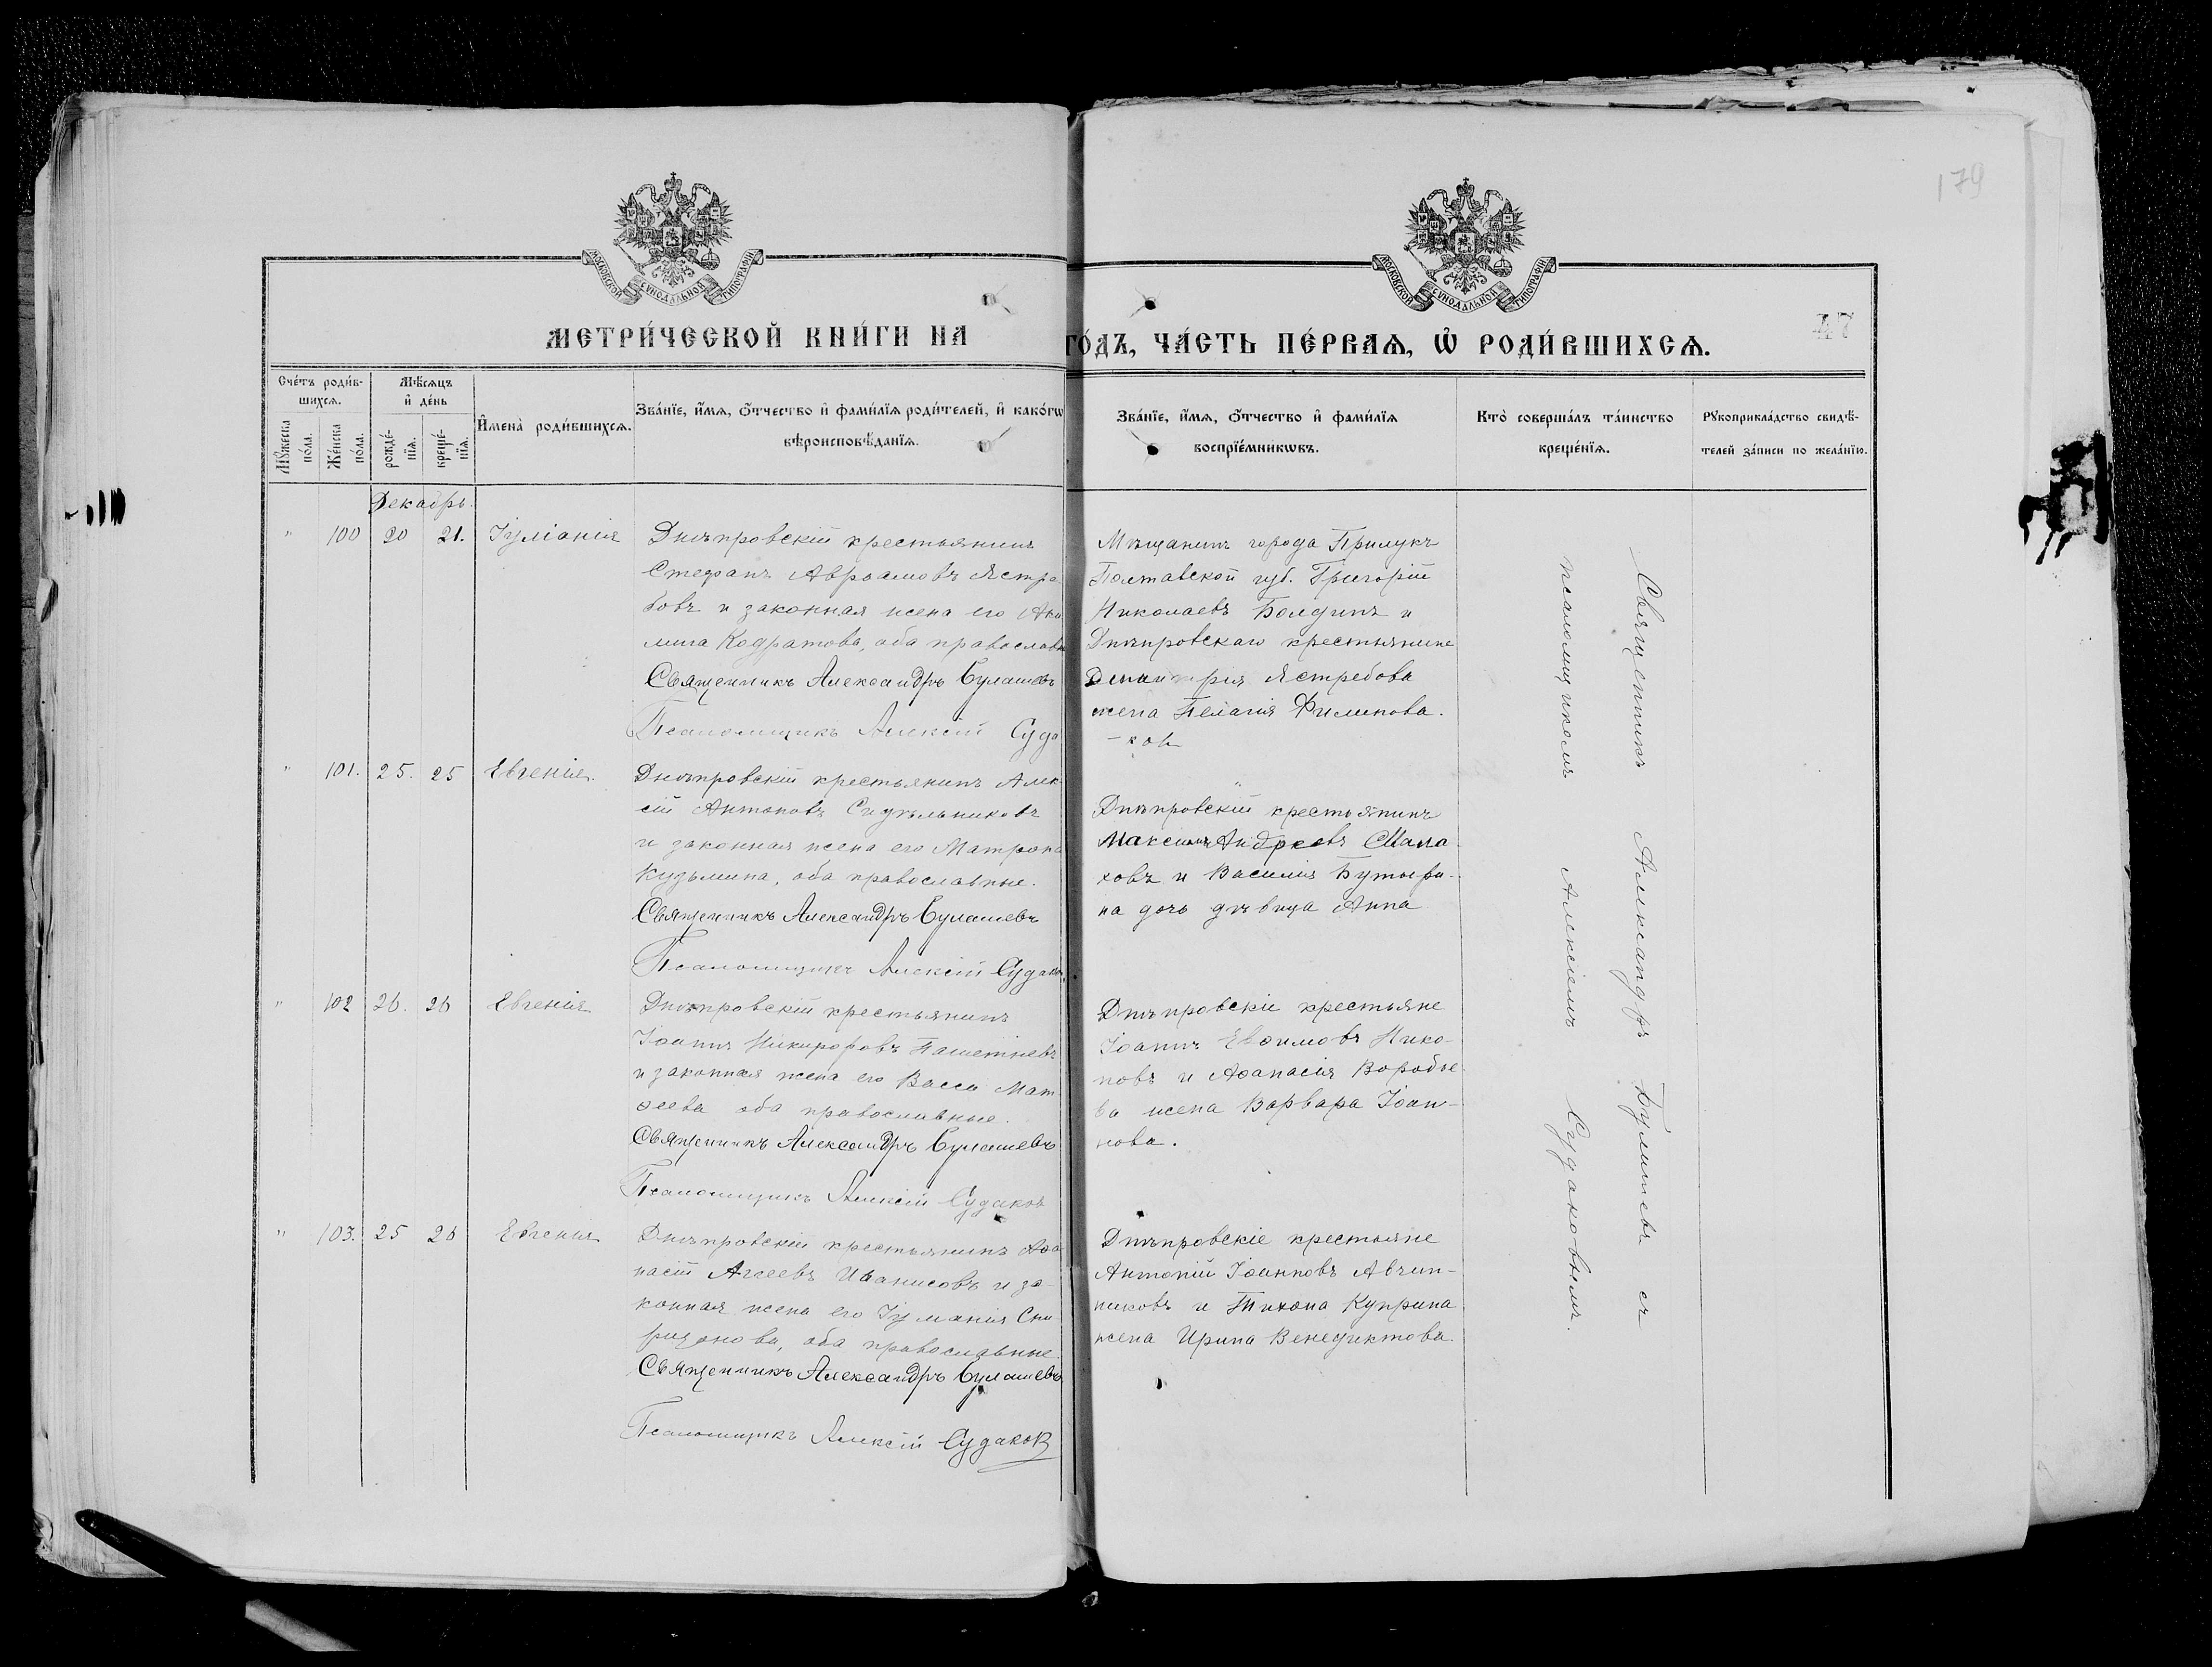 179
МОСКОВСКОЙ СѴНОДАЛЬНОЙ ТИПОГРАФІИ
МОСКОВСКОЙ СѴНОДАЛЬНОЙ ТИПОГРАФІИ
МЕТРИ́ЧЕСКОЙ КНИ́ГИ НА
ГО́ДЪ, ЧА́СТЬ ПЕ́РВАѦ, Ѡ҆ РОДИ́ВШИХСѦ.
47
Сче́тъ роди́в-
шихсѧ.
Мꙋ́жеска по́ла.
Же́нска по́ла.
Мѣ́сѧцъ
и҆ де́нь
рожде́-
нїѧ.
креще́-
нїѧ.
И҆мена̀ роди́вшихсѧ.
Зва́нїе, и҆́мѧ, ѻ҆́тчество и҆ фами́лїѧ роди́телей, и҆ како́гѡ
вѣроисповѣ́данїѧ.
Зва́нїе, и҆́мѧ, ѻ҆́тчество и҆ фами́лїѧ
воспрїе́мникѡвъ.
Кто̀ соверша́лъ та́инство
креще́нїѧ.
Рꙋкоприкла́дство свидѣ́-
телей за́писи по жела́нїю.
Декабрь.
" 100 20 21. Іуліанія
Днѣпровскій крестьянинъ
Стефанъ Авраамовъ Ястре
бовъ и законная жена его Аки
лина Кодратова, оба православн
Священникъ Александръ Булашевъ
Псаломщикъ Алексій Суда
-ков
Мѣщанинъ города Прилукъ
Полтавской губ. Григорій
Николаевъ Болдинъ и
Днѣпровскаго крестьянине
Димитрія Ястребова
жена Пелагія Филипова.
" 101. 25. 25 Евгенія.
Днѣпровскій крестьянинъ Алек
сій Антоновъ Сидѣльниковъ
и законная жена его Матрона
Кузьмина, оба православные.
Священникъ Александръ Булашевъ
Псаломщикъ Алексій Судаков
Днѣпровскій крестьянинъ
Максимъ Андреевъ Мала
ховъ и Василія Бутыри-
на дочь дѣвица Анна
" 102 26. 26 Евгенія
Днѣпровскій крестьянинъ
Іоаннъ Никифоровъ Пашетневъ
и законная жена его Васса Мат
ѳеева оба православные.
Священникъ Александръ Булашевъ
Псаломщикъ Алексій Судаков
Днѣпровскіе крестьяне
Іоаннъ Евѳимовъ Нико-
новъ и Аѳанасія Воробье-
ва жена Варвара Іоан-
нова.
" 103. 25 26 Евгенія
Днѣпровскій крестьянинъ Аѳа
насій Аггеевъ Иванисовъ и за-
конная жена его Іуліанія Спи
ридонова, оба православные.
Священникъ Александръ Булашевъ
Псаломщикъ Алексій Судаков
Днѣпровскіе крестьяне
Антоній Іоанновъ Авчин-
никовъ и Тихона Куприна
жена Ирина Венедиктова.
Священникъ Александръ Булашевъ съ
псаломщикомъ Алексіемъ Судаковымъ.